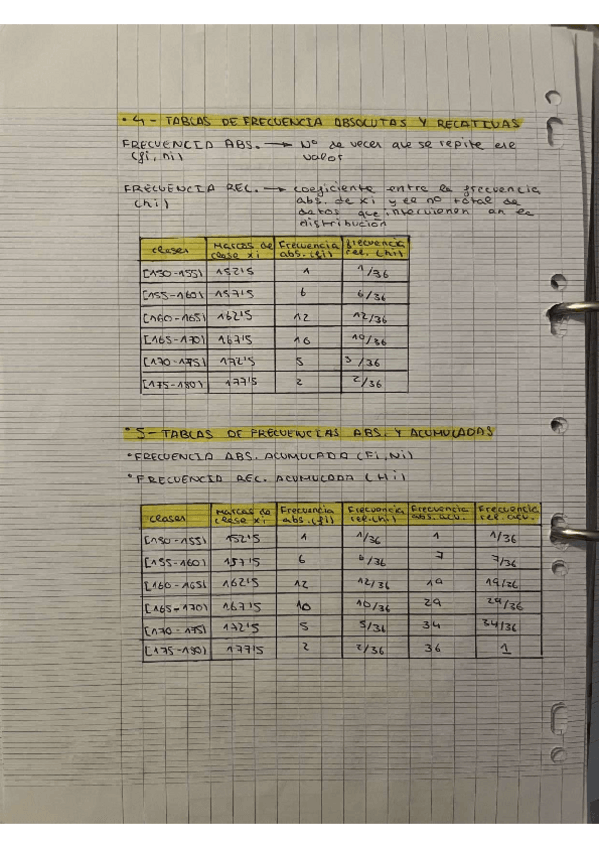 • 4 - TABLAS DE FRECUENCIA ABSOLUTAS Y RELATIVAS
FRECUENCIA ABS. → Nº de veces que se repite ese
(fi, ni) valor
FRECUENCIA REL. → coeficiente entre la frecuencia
(hi) abs. de xi y el nº total de
datos que intervienen en la
distribución
clases Marcas de clase xi Frecuencia abs. (fi) Frecuencia rel. (hi)
[150-155) 152'5 1 1/36
[155-160) 157'5 6 6/36
[160-165) 162'5 12 12/36
[165-170) 167'5 10 10/36
[170-175) 172'5 5 5/36
[175-180) 177'5 2 2/36
• 5 - TABLAS DE FRECUENCIAS ABS. Y ACUMULADAS
• FRECUENCIA ABS. ACUMULADA (Fi, Ni)
• FRECUENCIA REL. ACUMULADA (Hi)
clases Marcas de clase xi Frecuencia abs. (fi) Frecuencia rel. (hi) Frecuencia abs. acu. Frecuencia rel. acu.
[150-155) 152'5 1 1/36 1 1/36
[155-160) 157'5 6 6/36 7 7/36
[160-165) 162'5 12 12/36 19 19/36
[165-170) 167'5 10 10/36 29 29/36
[170-175) 172'5 5 5/36 34 34/36
[175-180) 177'5 2 2/36 36 1